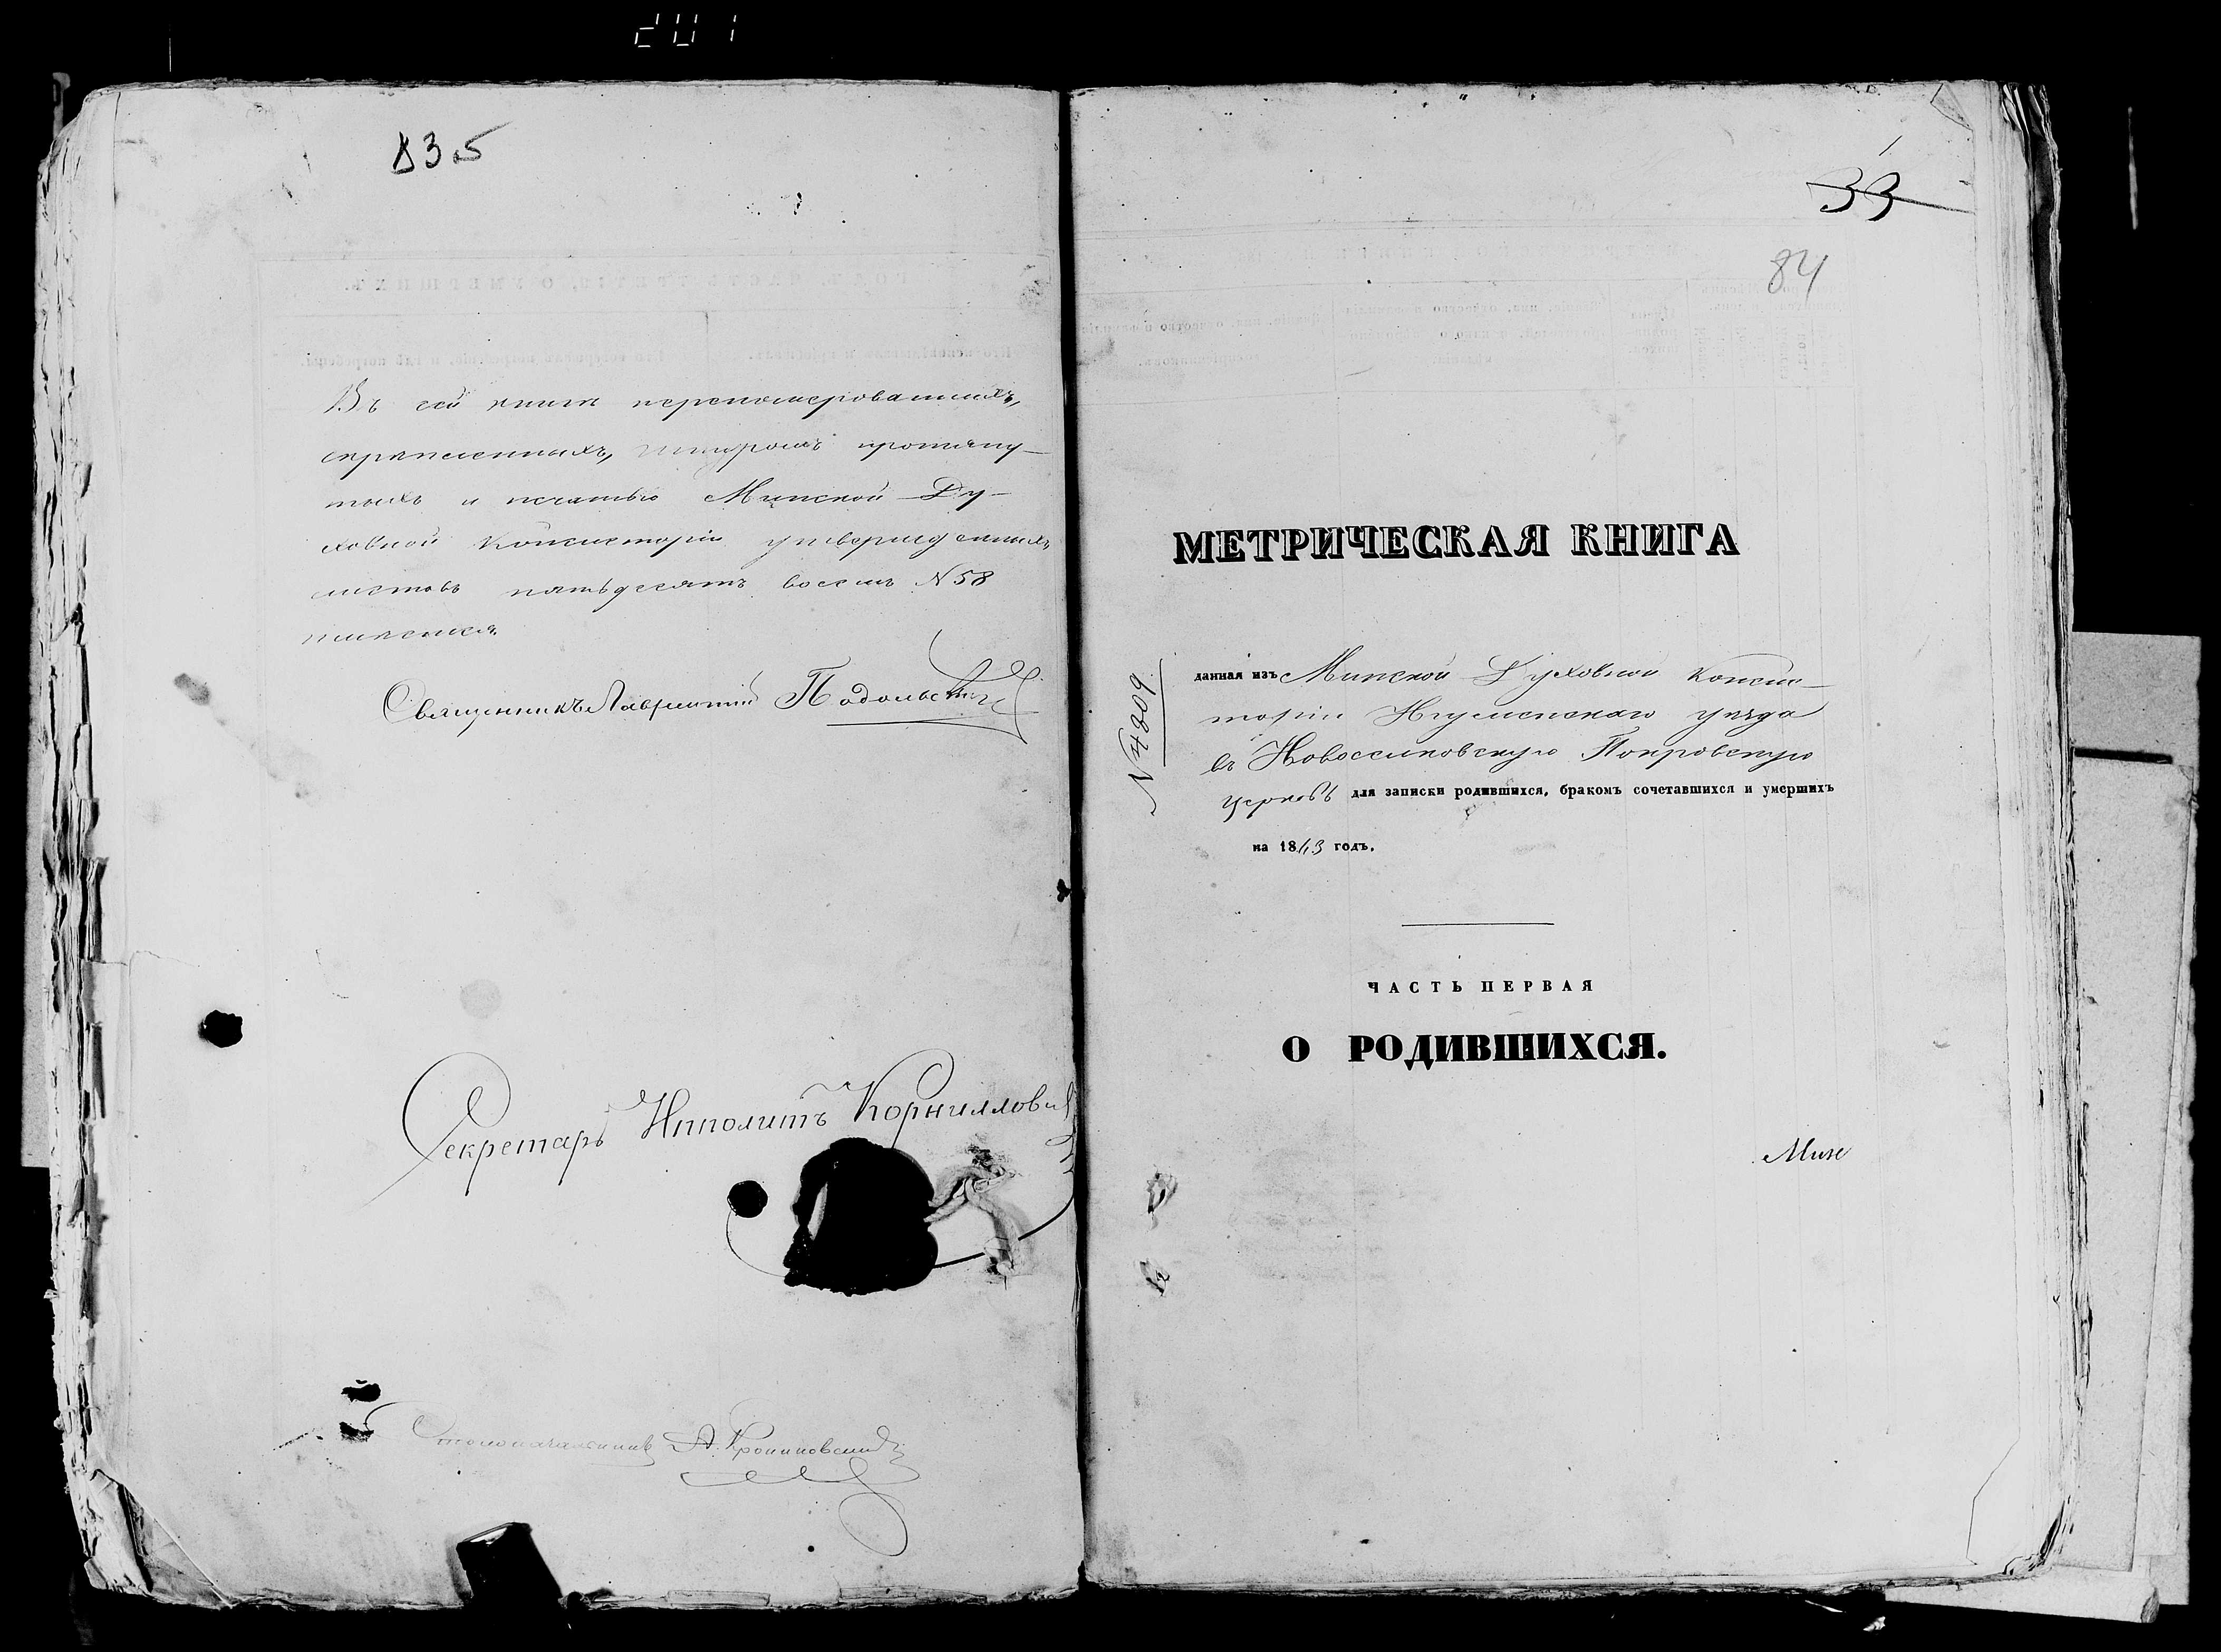 201
835
Въ сей книгѣ переномерованныхъ,
скрѣпленныхъ, шнуромъ протяну-
тыхъ и печатью Минской Ду-
ховной Консисторіи утвержденныхъ
листовъ пятьдесятъ восемь N 58
Священникъ Лаврентій Подольскій
Секретарь Ипполитъ Корнилловичъ
Столоначальникъ А.
1
33
84
МЕТРИЧЕСКАЯ КНИГА
N 4809
данная изъ Минской Духовной Консис-
торіи Игуменскаго уѣзда
въ Новоселковскую Покровскую
церковь для записки родившихся, бракомъ сочетавшихся и умершихъ
на 1843 годъ.
ЧАСТЬ ПЕРВАЯ
О РОДИВШИХСЯ.
Минс